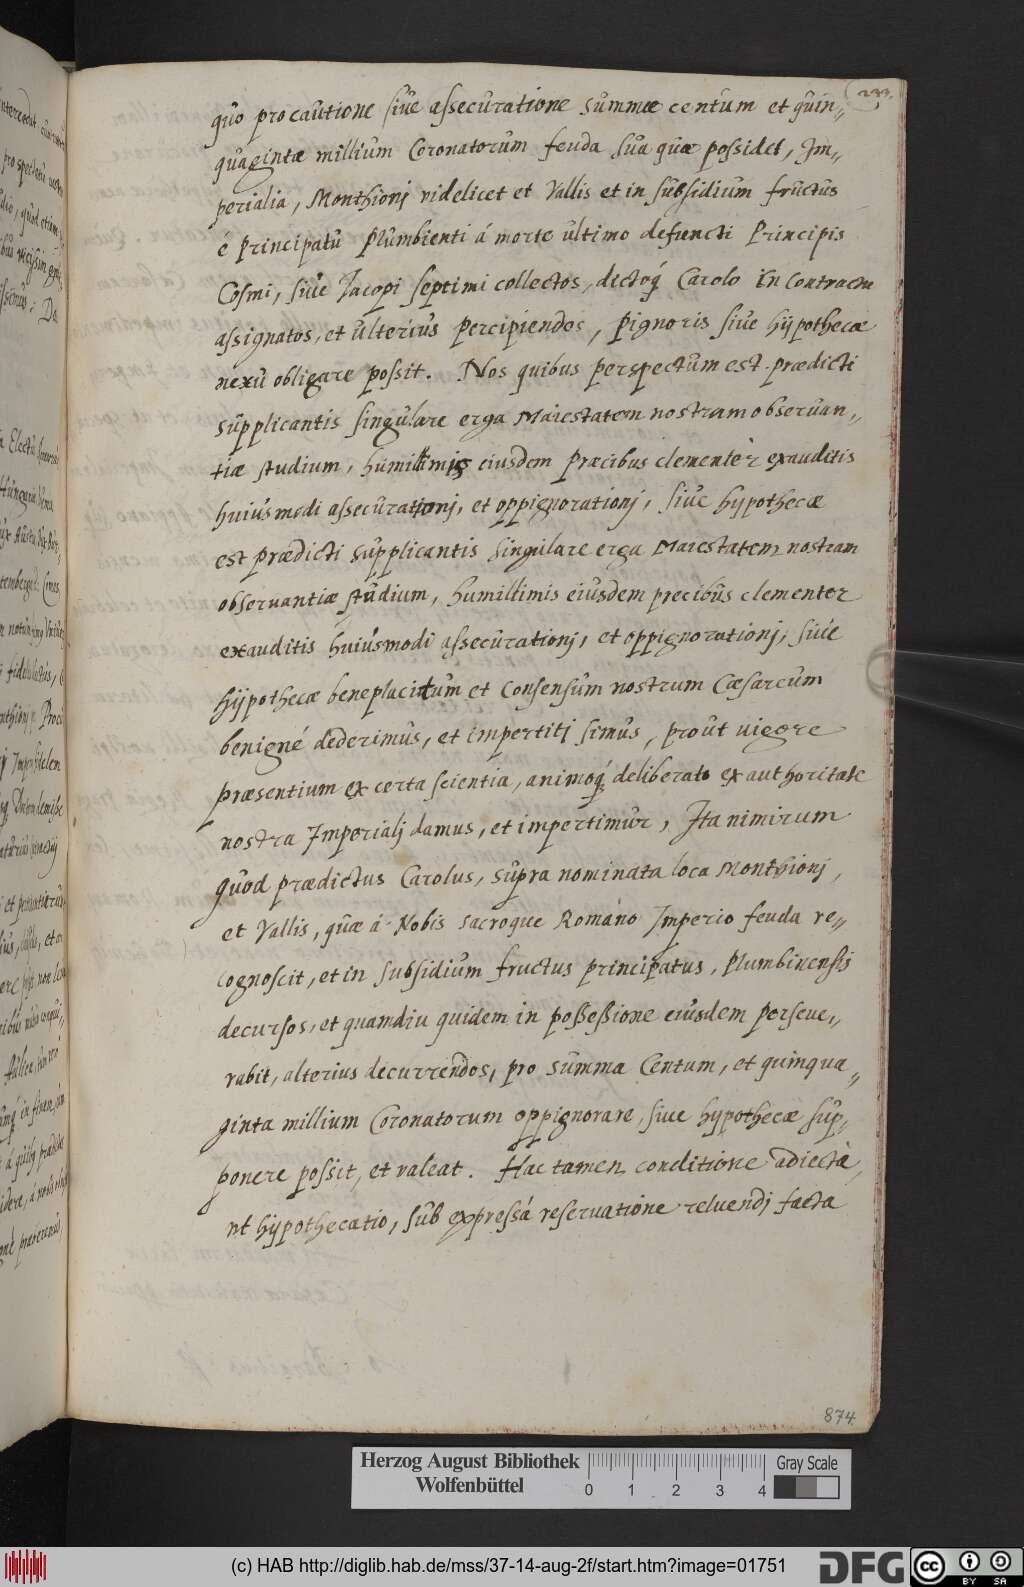 233.
quo pro cautione siue assecuratione summæ centum et quin„
quagintæ millium Coronatorum feuda sua quæ possidet, Im„
perialia, Monthionj videlicet et Vallis et in subsidium fructus
é principatu Plumbienti á morte ultimo defuncti Principis
Cosmi, siue Jacopi septimi collectos, dictoq́ Carolo in Contractu
assignatos, et ulterius percipiendos, pignoris siue hÿpothecæ
nexu obligare possit. Nos quibus perspectum est prædicti
supplicantis singulare erga Maiestatem nostram obseruan„
tiæ studium, humillimis eiusdem præcibus clementèr exauditis
huiusmodi assecurationj, et oppignorationj, siue hypothecæ
est prædicti supplicantis singulare erga Maiestatem nostram
obseruantiæ studium, humillimis eiusdem precibus clementer
exauditis huiusmodi assecurationj, et oppignorationj, siue
hÿpothecæ beneplacitum et Consensum nostrum Cæsareum
benigné dederimus, et impertitj simus, prout vigore
præsentium ex certa scientia, animoq́; deliberato ex authoritate
nostra Imperialj damus, et impertimur, Ita nimirum
quod prædictus Carolus, supra nominata loca Monthionj,
et Vallis, quæ á Nobis sacroque Romano Imperio feuda re„
cognoscit, et in subsidium fructus principatus, Plumbinensis
decursos, et quamdiu quidem in possessione eiusdem perseue„
rabit, alterius decurrendos, pro summa Centum, et quinqua„
ginta millium Coronatorum oppignorare, siue hypothecæ sup„
ponere possit, et valeat. Hac tamen conditione adiecta,
ut hÿpothecatio, sub expressá reseruatione reluendj facta
874.
Herzog August Bibliothek
Wolfenbüttel
0 1 2 3 4
Gray Scale
(c) HAB http://diglib.hab.de/mss/37-14-aug-2f/start.htm?image=01751
DFG
cc BY SA